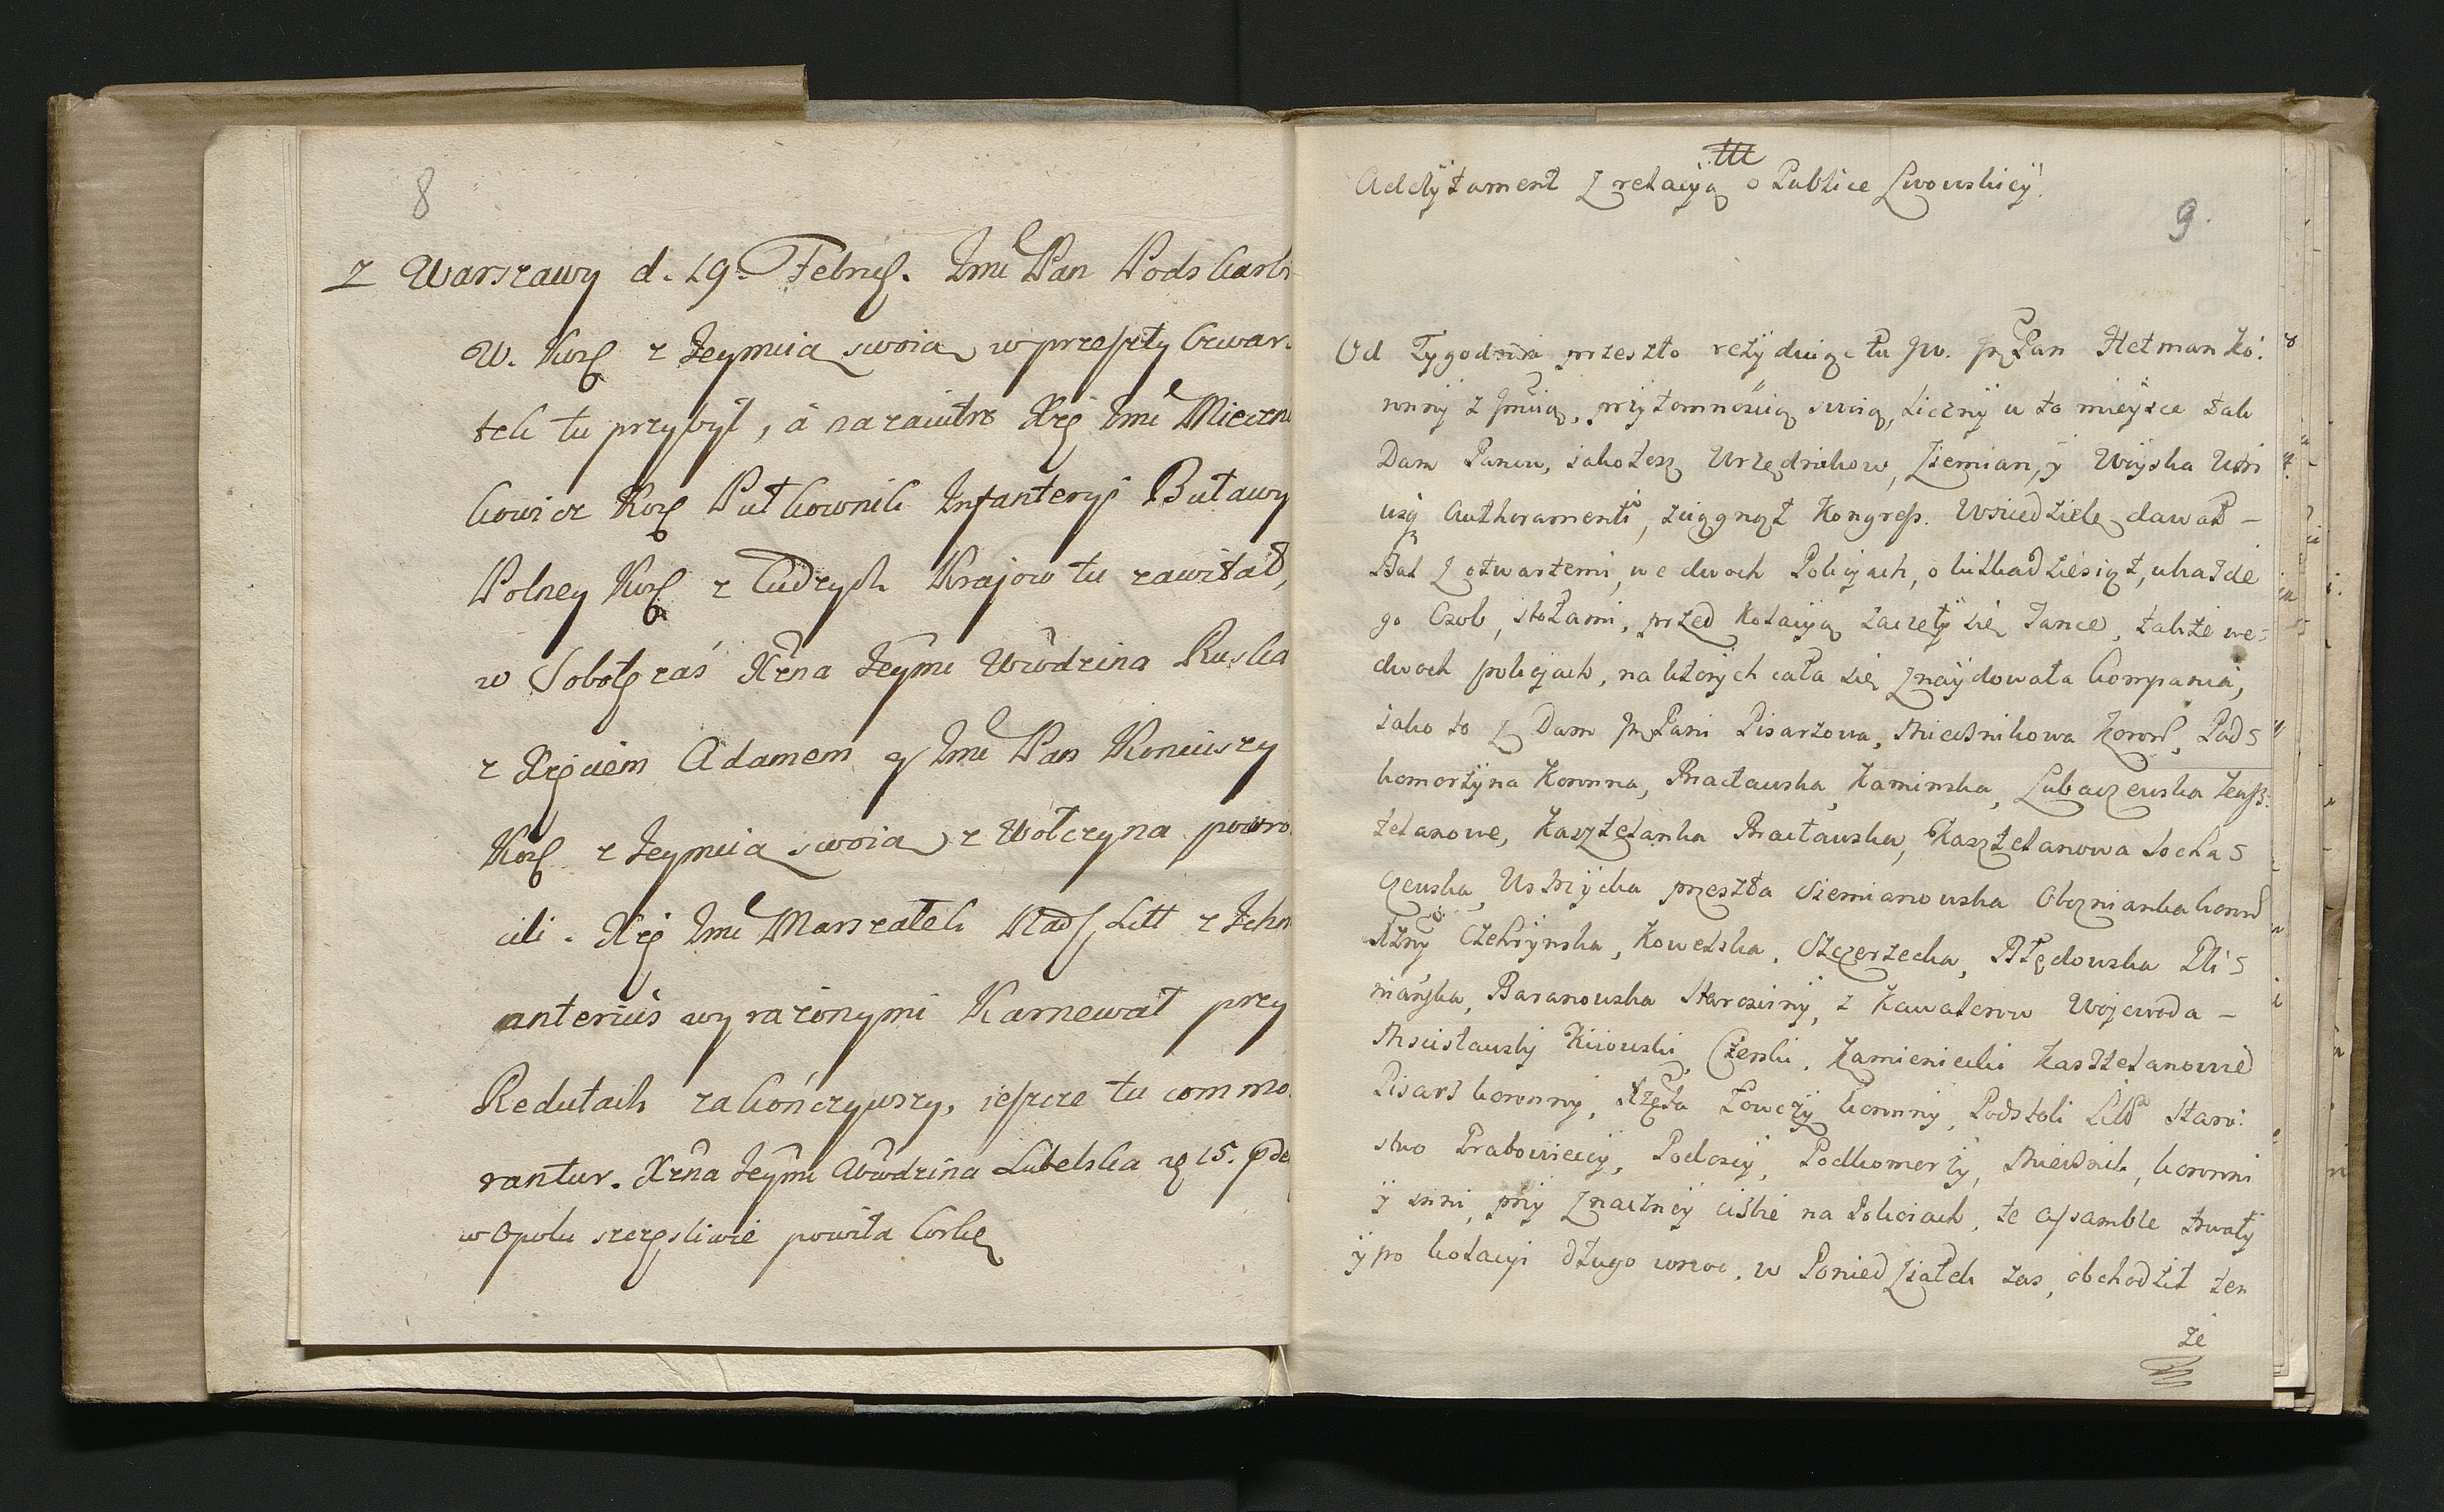 8
Z Warszawy d. 19. Febru. Jmć Pan Podskarbi
W. Kor z Jeymcią swoią w przeszły Czwar
tek tu przybył, á nazaiutrz Xżę Jmć Mieczni
kowicz Kor Pułkownik Infanteryi Buławy
Polney Kor z Cudzych Kraiow tu zawitał,
w Sobotę zaś Xżna Jeymć Wwodzina Ruska
z Xżęciem Adamem y Jmć Pan Koniuszy
Kor z Jeymcią swoią z Wołczyna powro
cili. Xżę Jmć Marszałek Nad Litt z Ichm
anterius wyrażonymi Karnewał przy
Redutach zakończywszy, ieszcze tu commo
rantur. Xżna Jeymć Wwodzina Lubelska 15.
w Opolu szczęśliwie powiła Corkę
Addytament z relacyą o Publice Lwowskiey.
9.
Od Tygodnia przeszło rezyduiąc tu Jw. Jm Pan Hetman Ko:
ronny z Jmcią, przytomnością swoią, liczny w to mieysce tak
Dam Panow, iakotesz Urzędnikow, Ziemian, y Woyska Utri
usq Authoramenti, zciągnął Kongress. W Niedziele dawał
Bal z otwartemi, we dwoch Pokojach, o kilkadziesiąt, każde
go Osob, stołami, przed Kolacyą zaczęły się Tance, także we
dwoch pokojach, na ktorych cała się znaydowała kompania,
iako to z Dam Jm Pani Pisarzowa, Miecznikowa Koron, Pod
komorzyna Koronna, Bracławska, Kaminska, Lubaczewska Kasz:
telanowe, Kasztelanka Bracławska, Kasztelanowa Socha
czewska, Ustrzycka przeszła Siemianowska Oboznianka koron
Czehrynska, Kowelska, Szczerzecka, Błędowska Dli
niańska, Baranowska Starościny, z Kawalerow Wojewoda
Mscisławsky Kiiowski, Czerski, Kamieniecki Kasztelanowie
Pisarz koronny, Xzęta Łowczy koronny, Podstoli Litt Staro:
stwo Drabowieccy, Podczy, Podkomorzy, Miecznik, koronni
y inni, przy znaczney ciżbie na Pokoiach, te assamble trwały
y po kolacyi długo w noc, w Poniedziałek zas, obchodził ten
że